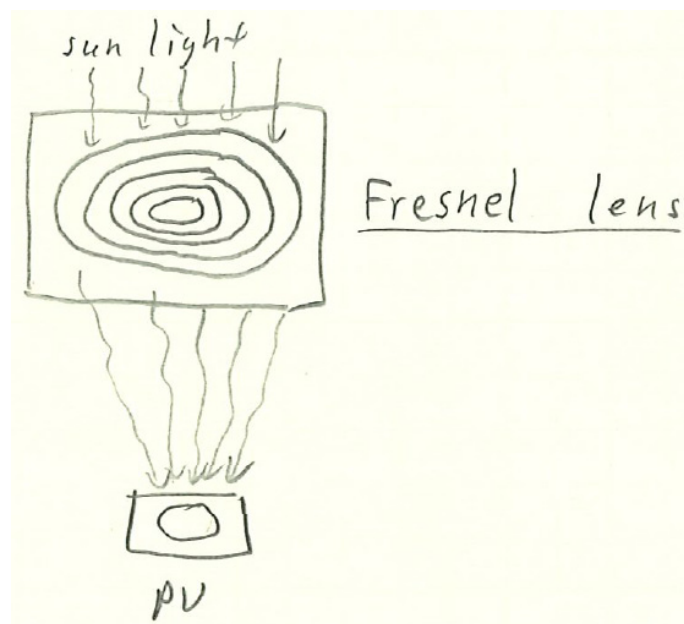 sun light
Fresnel lens
PV